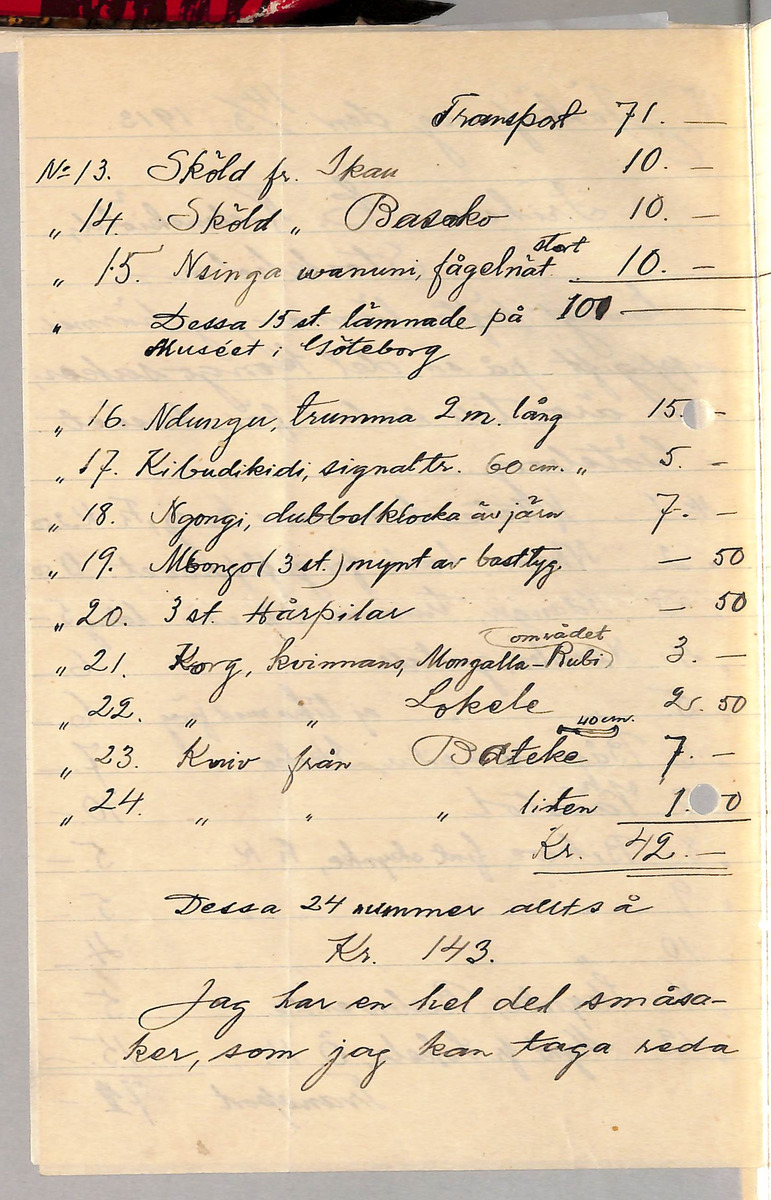 Transport 71. —
No 13. Sköld fr. Ikau 10. —
„ 14. Sköld „ Basoko 10. —
„ 15. Nsinga wanuni, fågelnät stort 10. —
„ Dessa 15 st. lämnade på 101 —
Muséet i Göteborg
„ 16. Ndungu, trumma 2 m. lång 15. -
„ 17. Kibudikidi, signaltr. 60 cm. „ 5. -
„ 18. Ngongi, dubbelklocka av järn 7. —
„ 19. Mbongo (3 st.) mynt av basttyg. — 50
„ 20. 3 st. Hårpilar — 50
„ 21. Korg, kvinnans, Mongalla-Rubi (området) 3. —
„ 22. „ „ Lokele 2. 50
„ 23. Kniv från Bateke 40 cm. 7. -
„ 24. „ „ „ liten 1. 50
Kr. 42. —
Dessa 24 nummer alltså
Kr. 143.
Jag har en hel del småsa-
ker, som jag kan taga reda